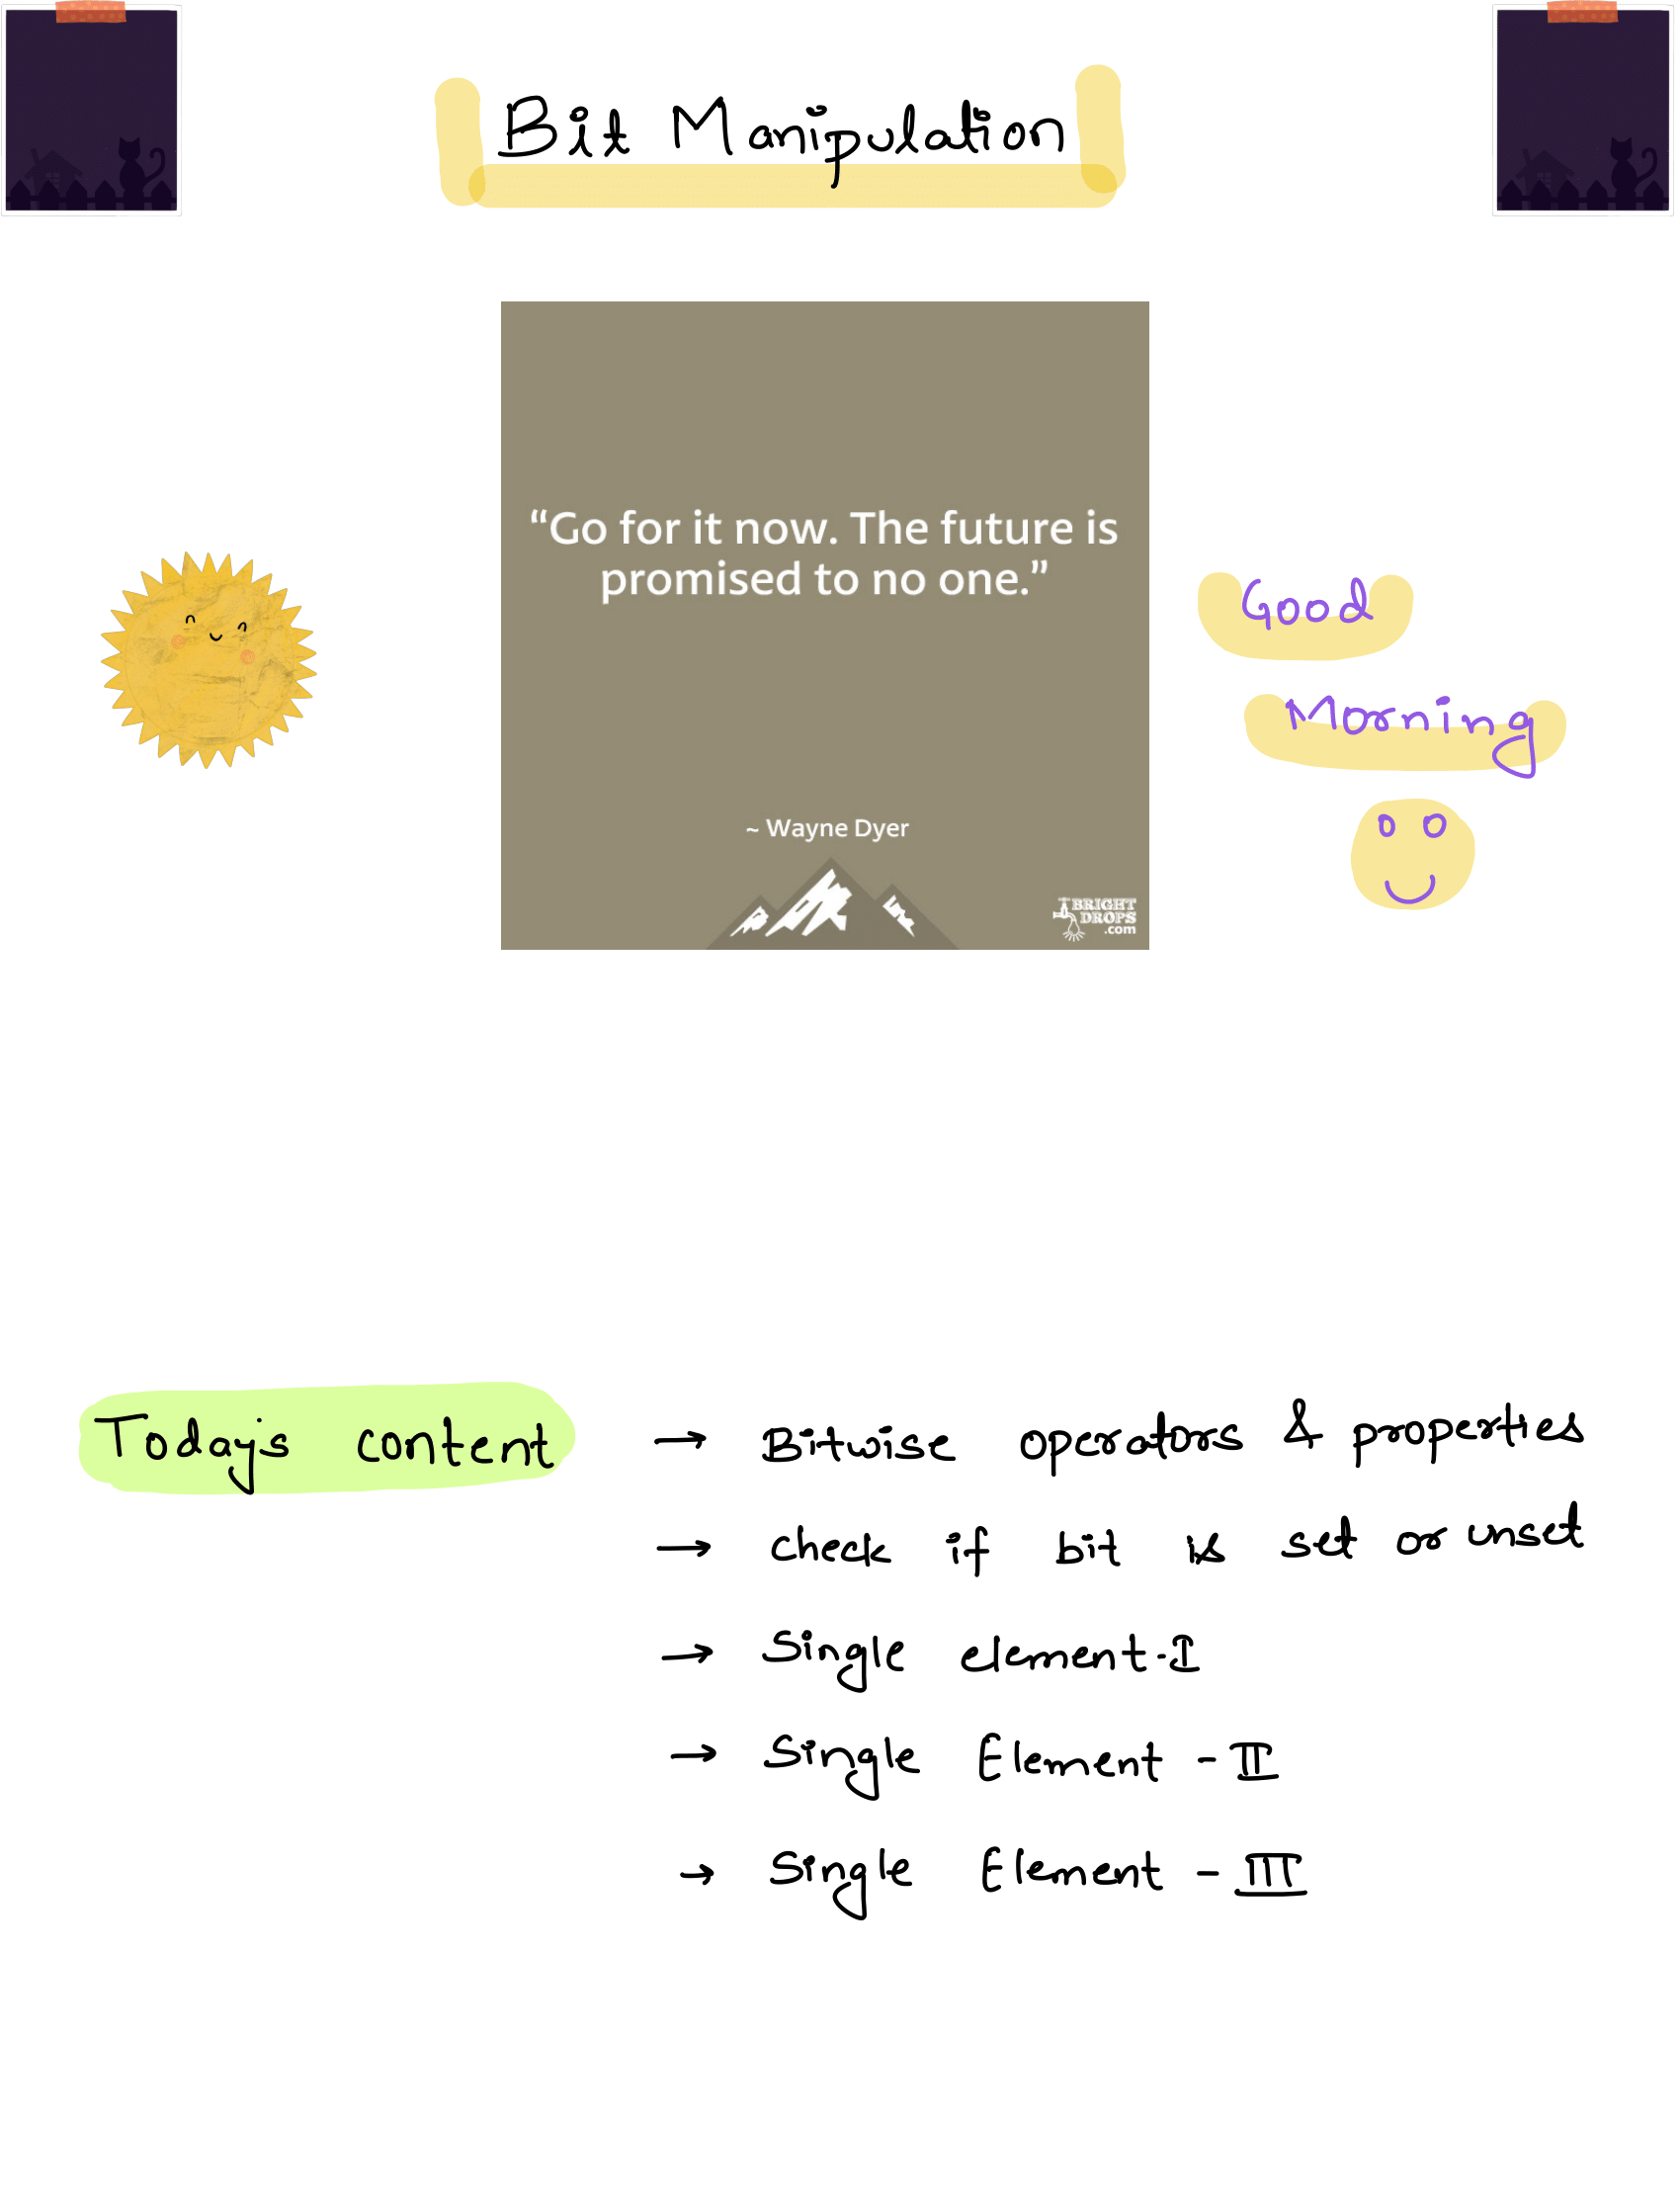 Bit Manipulation
“Go for it now. The future is
promised to no one.”
~ Wayne Dyer
BRIGHT
DROPS
.com
Good
Morning
Today's content → Bitwise operators & properties
→ check if bit is set or unset
→ Single element-I
→ Single Element - II
→ Single Element - III